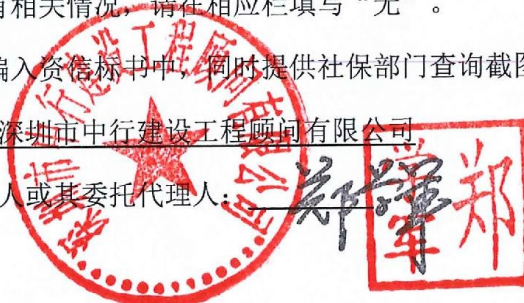 有相关情况，请在相应栏填写“无”。
编入资信标书中，同时提供社保部门查询截图
深圳市中行建设工程顾问有限公司
人或其委托代理人：
深圳市中行建设工程顾问有限公司
郑